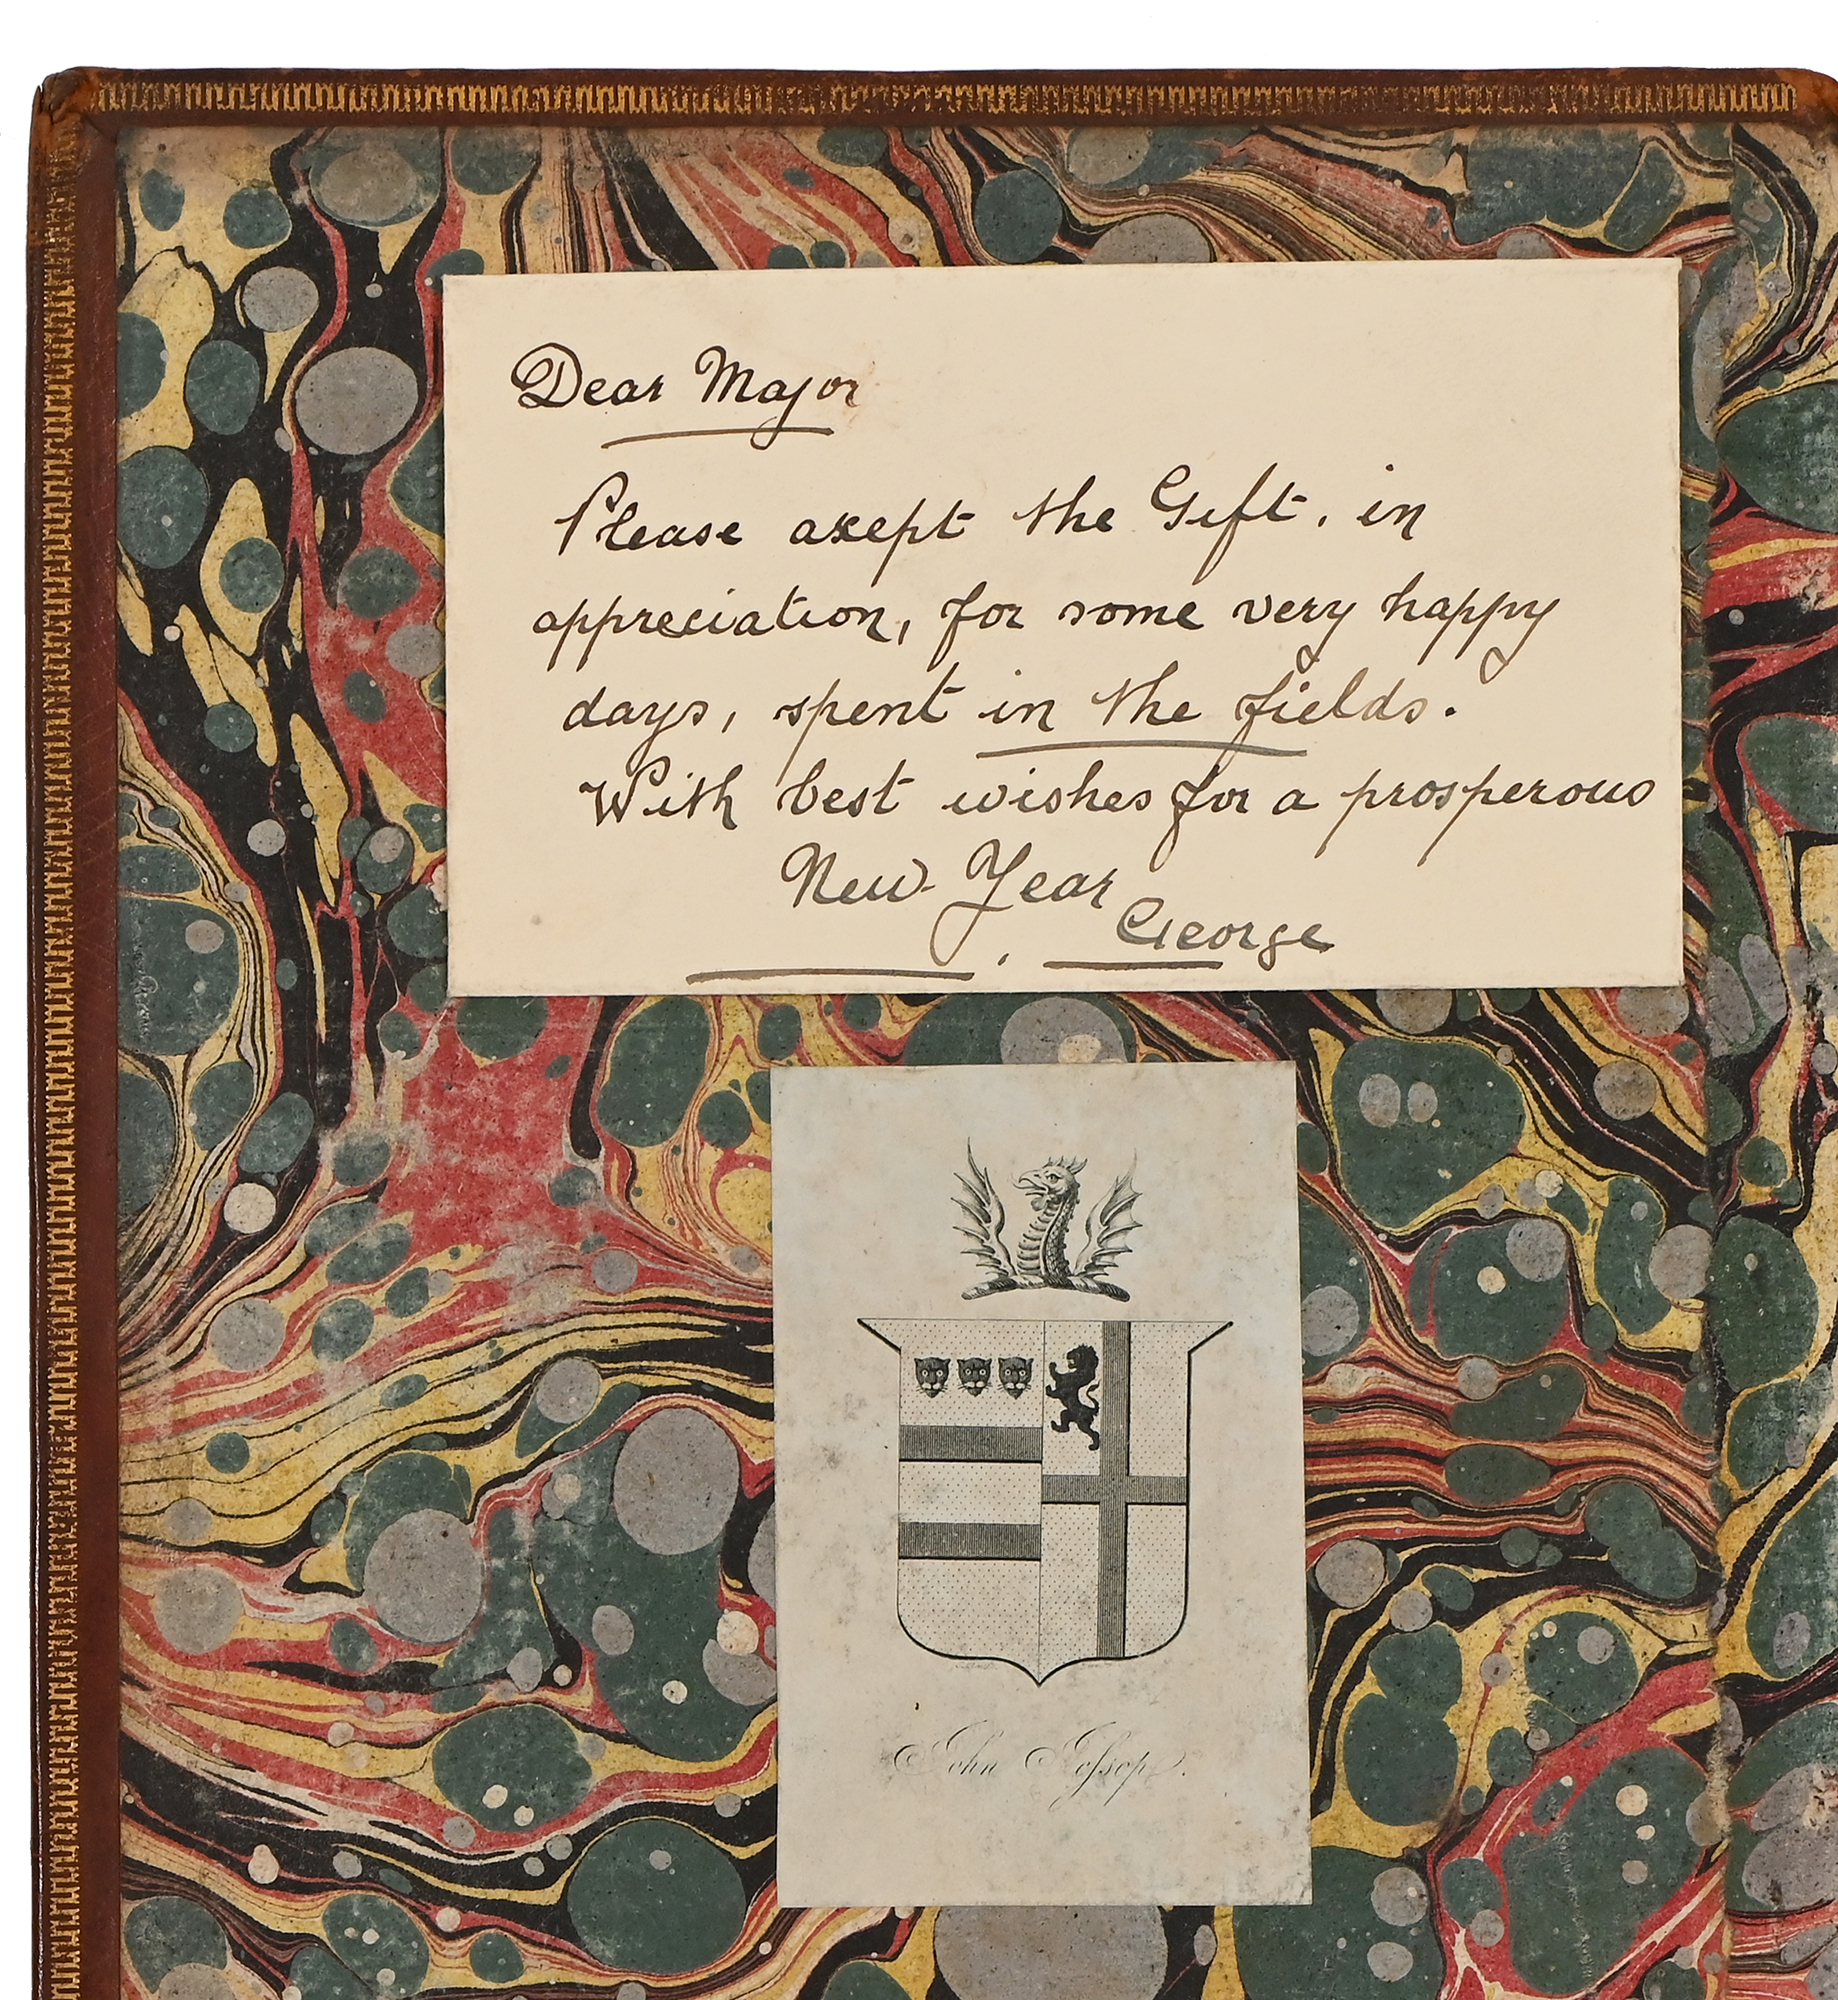 Dear Major
Please axept the Gift, in
appreciation, for some very happy
days, spent in the fields.
With best wishes for a prosperous
New Year
George
John Joſsop.